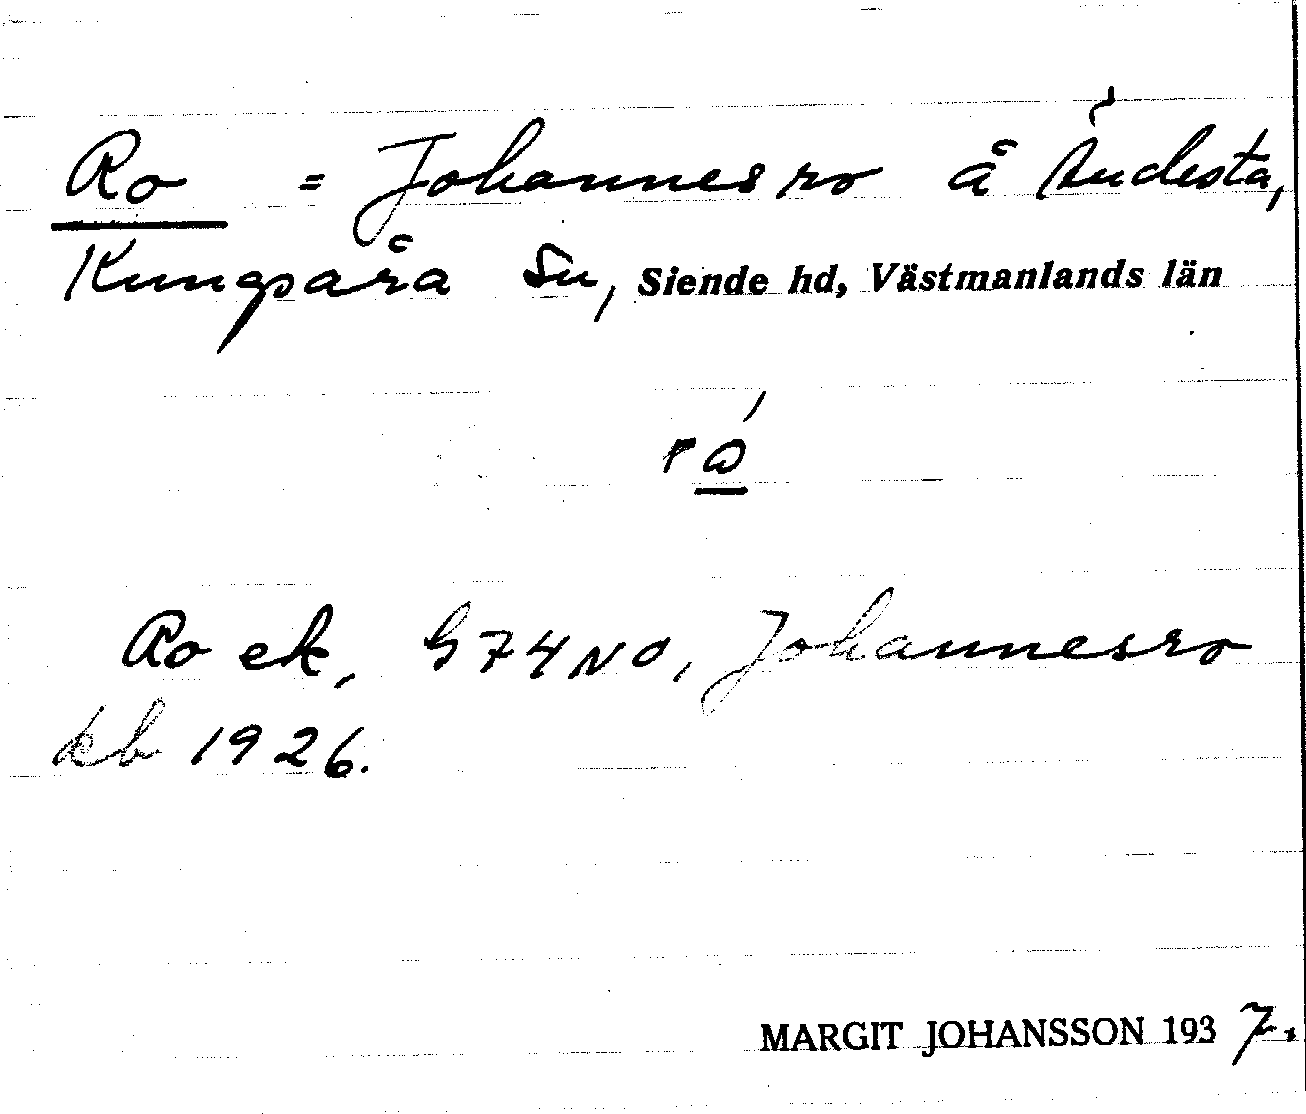 Ro = Johannesro å Ändesta,
Kungsåra sn, Siende hd, Västmanlands län
ró
Ro ek, G74NO, Johannesro
kb 1926.
MARGIT JOHANSSON 1937.